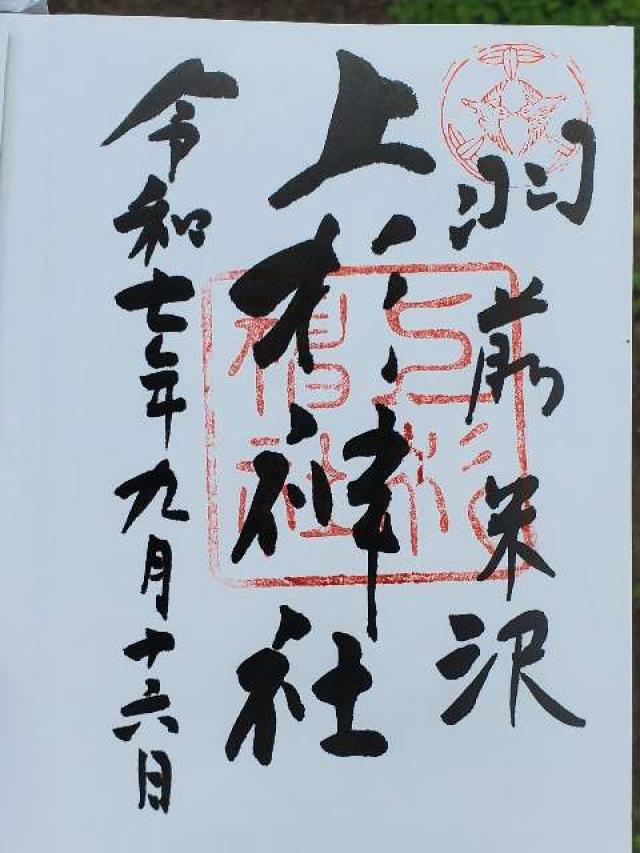 羽前米沢
上杉神社
令和七年九月十六日